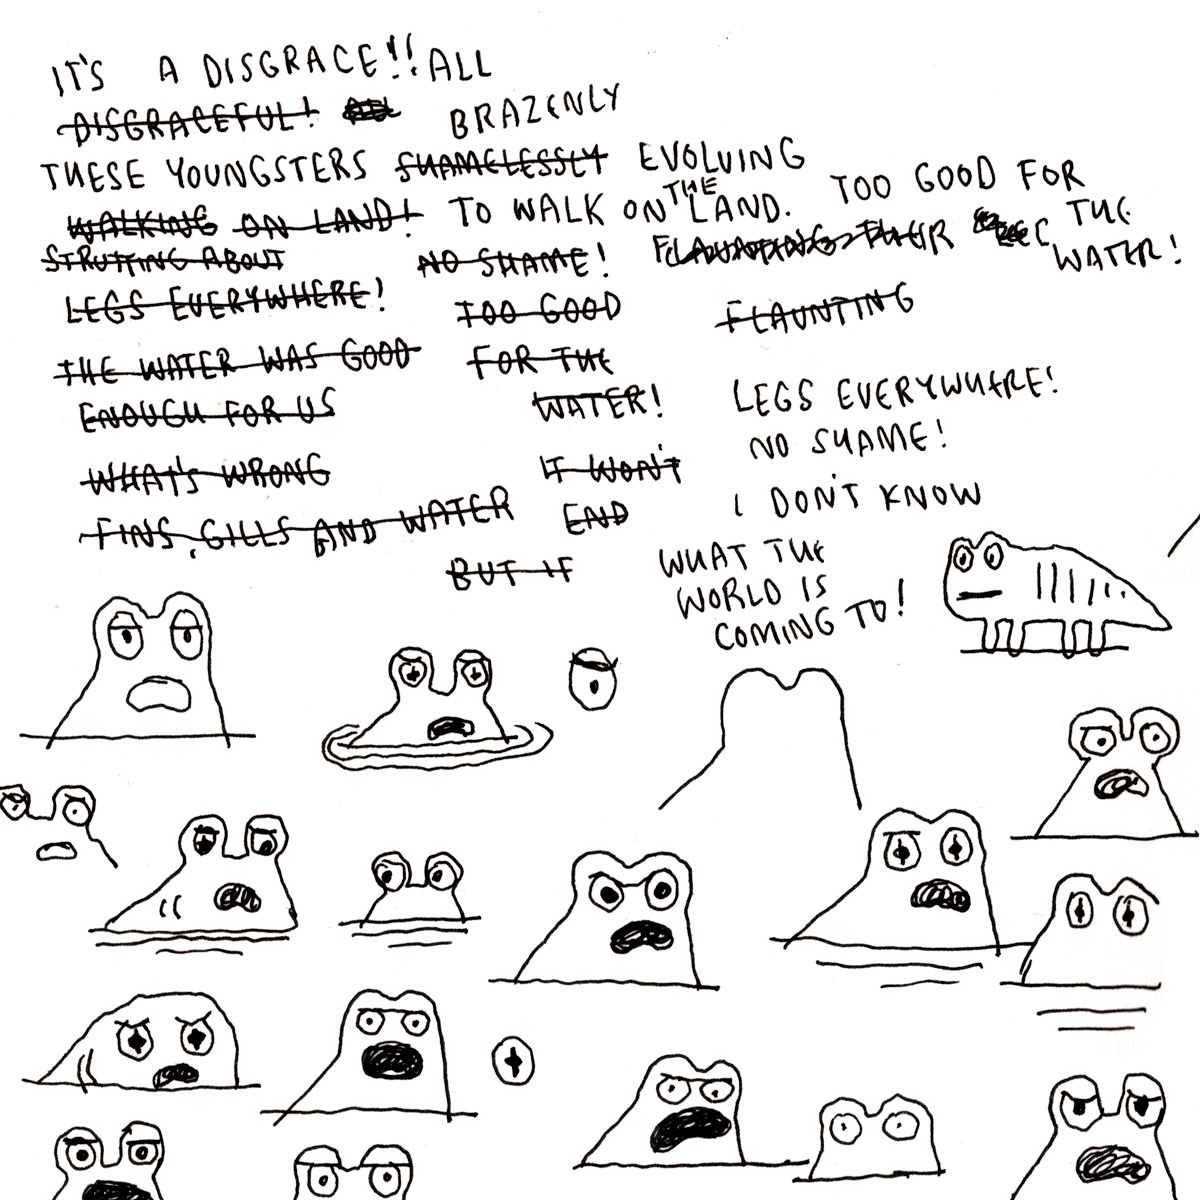 IT'S A DISGRACE!! ALL
DISGRACEFUL! ALL BRAZENLY
THESE YOUNGSTERS SHAMELESSLY EVOLVING
WALKING ON LAND! TO WALK ON THE LAND. TOO GOOD FOR
STRUTTING ABOUT NO SHAME! FLAUNTING THEIR THE
LEGS EVERYWHERE! TOO GOOD FLAUNTING WATER!
THE WATER WAS GOOD FOR THE
ENOUGH FOR US WATER! LEGS EVERYWHERE!
WHAT'S WRONG IT WON'T NO SHAME!
FINS, GILLS AND WATER END I DON'T KNOW
BUT IF WHAT THE
WORLD IS
COMING TO!